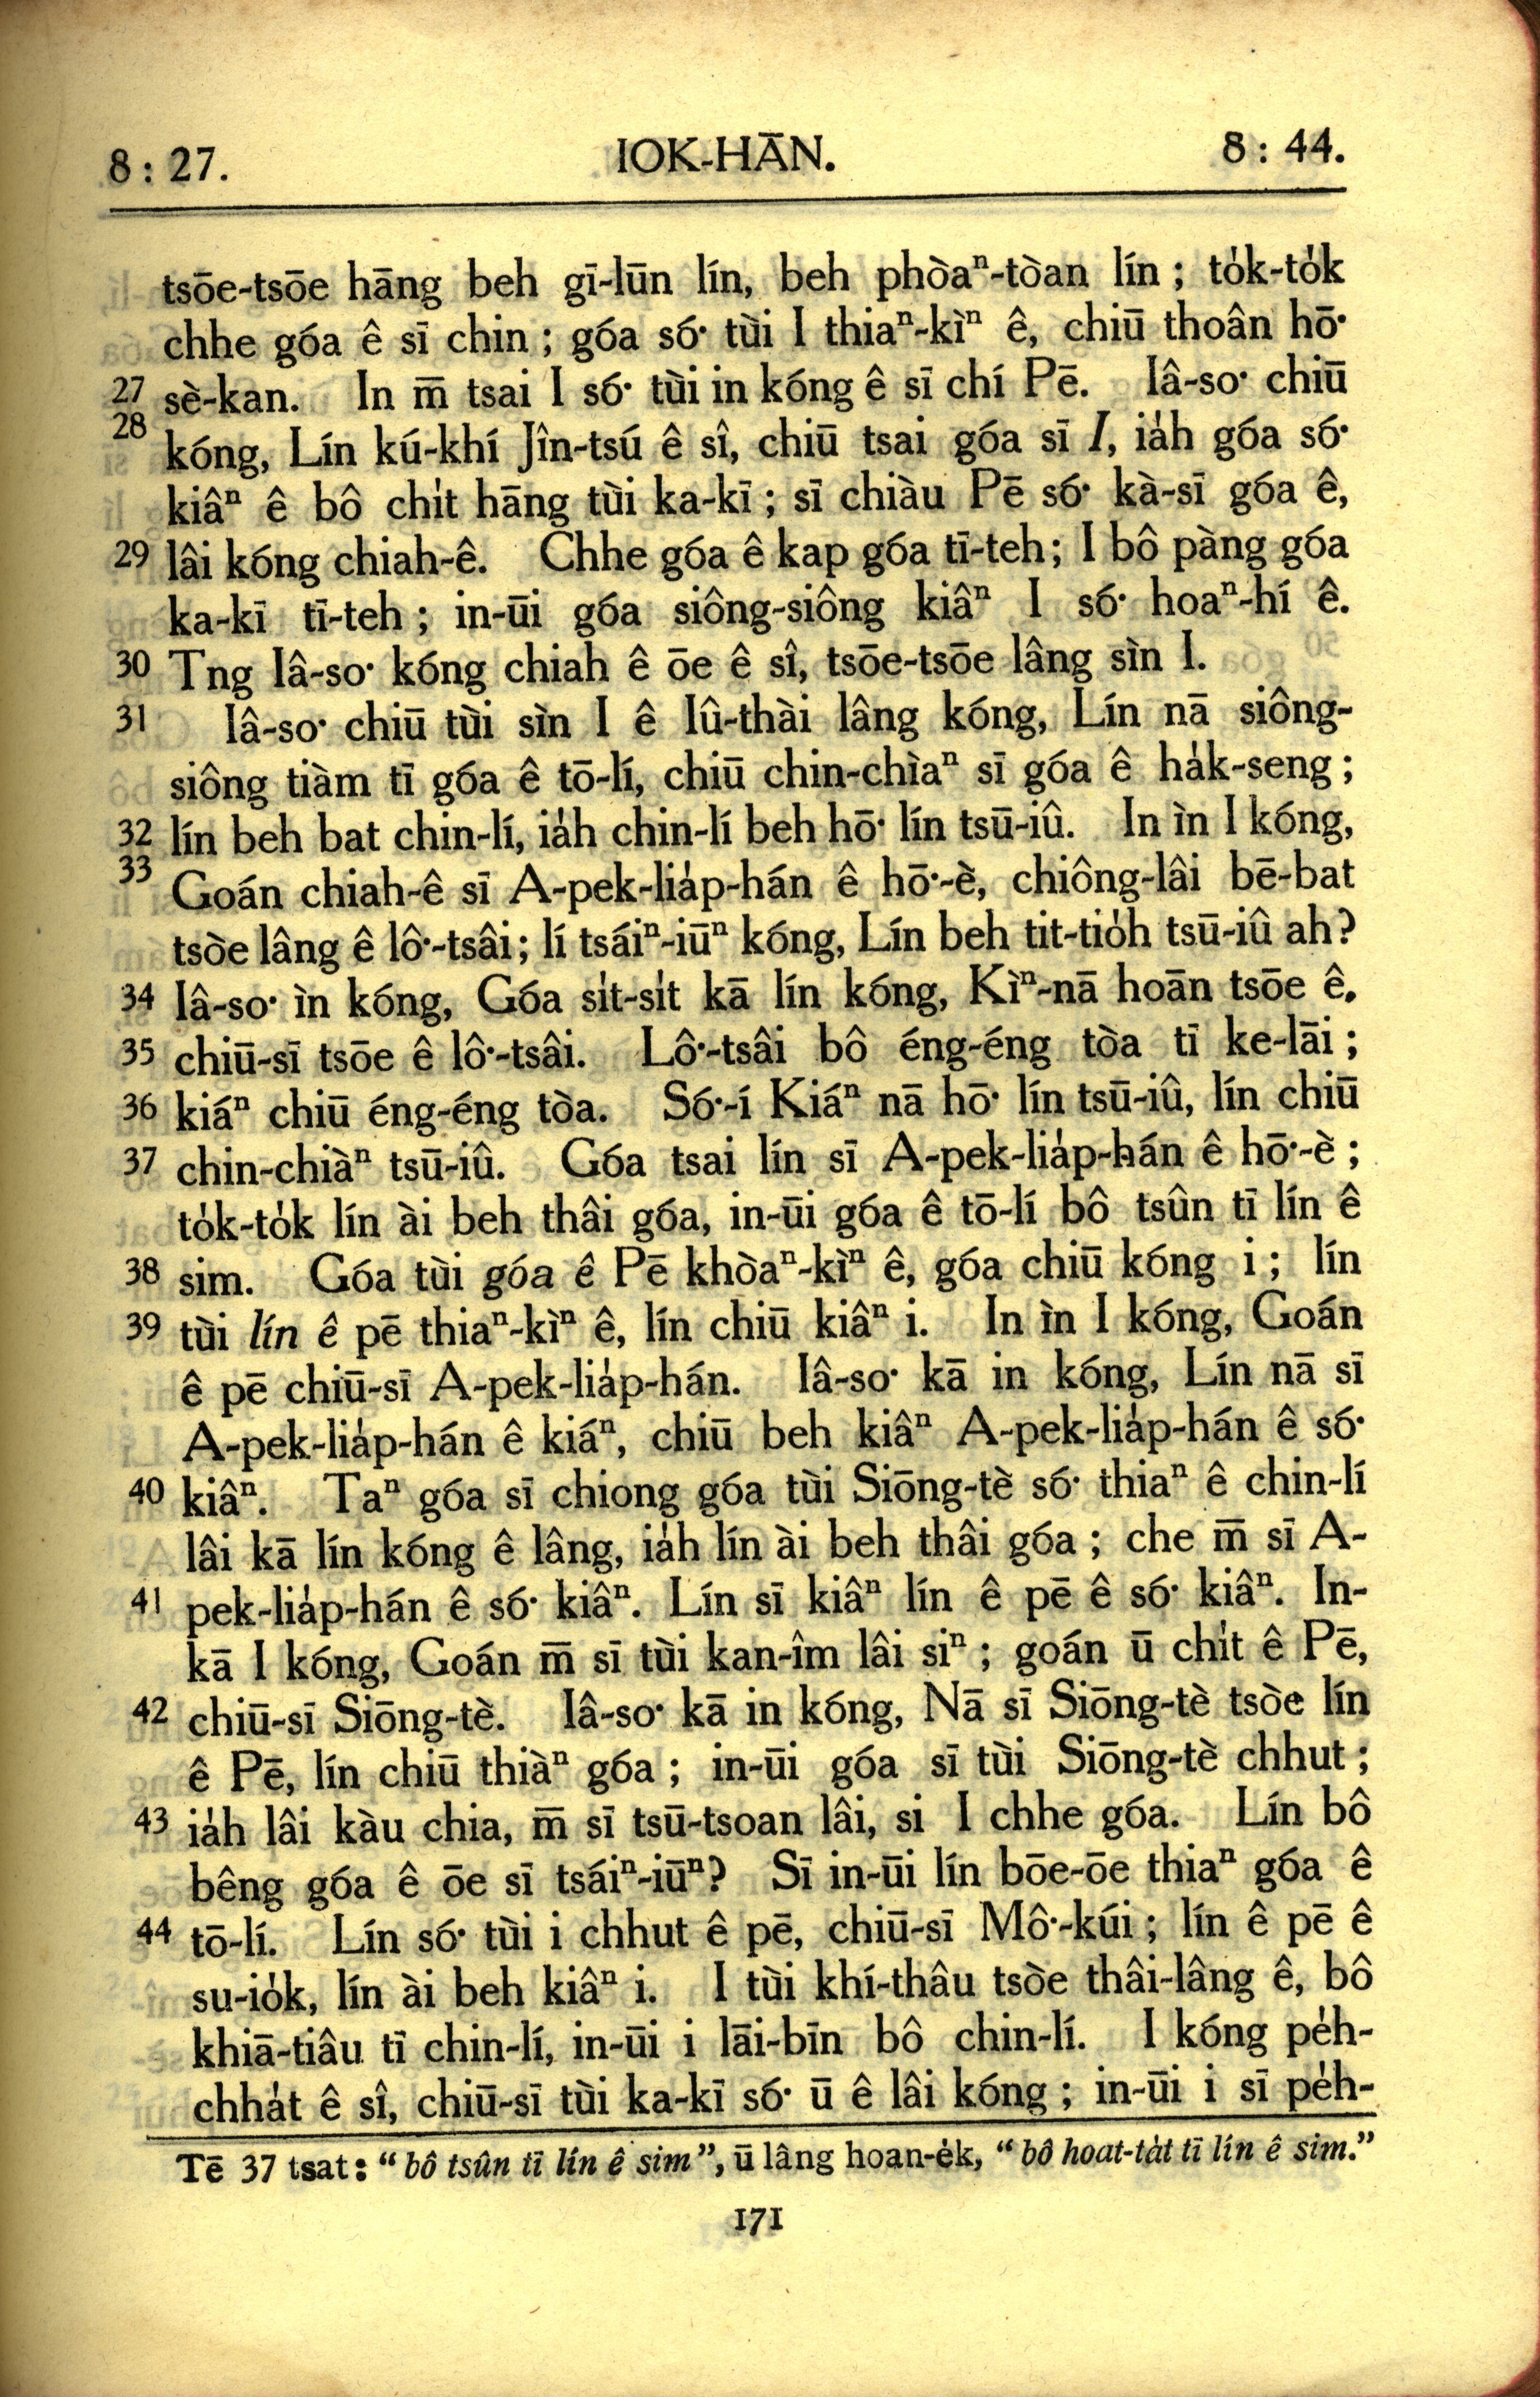 8 : 27.
IOK-HĀN.
8 : 44.
tsōe-tsōe hāng beh gī-lūn lín, beh phòaⁿ-tòan lín ; to̍k-to̍k
chhe góa ê sī chin ; góa só͘ tùi I thiaⁿ-kìⁿ ê, chiū thoân hō͘
27 sè-kan. In m̄ tsai I só͘ tùi in kóng ê sī chí Pē. Iâ-so͘ chiū
28 kóng, Lín kú-khí Jîn-tsú ê sî, chiū tsai góa sī I, ia̍h góa só͘
kiâⁿ ê bô chi̍t hāng tùi ka-kī ; sī chiàu Pē só͘ kà-sī góa ê,
29 lâi kóng chiah-ê. Chhe góa ê kap góa tī-teh ; I bô pàng góa
ka-kī tī-teh ; in-ūi góa siông-siông kiâⁿ I só͘ hoaⁿ-hí ê.
30 Tng Iâ-so͘ kóng chiah ê ōe ê sî, tsōe-tsōe lâng sìn I.
31 Iâ-so͘ chiū tùi sìn I ê Iû-thài lâng kóng, Lín nā siông-
siông tiàm tī góa ê tō-lí, chiū chin-chìaⁿ sī góa ê ha̍k-seng ;
32 lín beh bat chin-lí, ia̍h chin-lí beh hō͘ lín tsū-iû. In ìn I kóng,
33 Goán chiah-ê sī A-pek-lia̍p-hán ê hō͘-è, chiông-lâi bē-bat
tsòe lâng ê lô͘-tsâi ; lí tsáiⁿ-iūⁿ kóng, Lín beh tit-tio̍h tsū-iû ah?
34 Iâ-so͘ ìn kóng, Góa si̍t-si̍t kā lín kóng, Kìⁿ-nā hoān tsōe ê.
35 chiū-sī tsōe ê lô͘-tsâi. Lô͘-tsâi bô éng-éng tòa tī ke-lāi ;
36 kiáⁿ chiū éng-éng tòa. Só͘-í Kiáⁿ nā hō͘ lín tsū-iû, lín chiū
37 chin-chiàⁿ tsū-iû. Góa tsai lín sī A-pek-lia̍p-hán ê hō͘-è ;
to̍k-to̍k lín ài beh thâi góa, in-ūi góa ê tō-lí bô tsûn tī lín ê
38 sim. Góa tùi góa ê Pē khòaⁿ-kìⁿ ê, góa chiū kóng i ; lín
39 tùi lín ê pē thiaⁿ-kìⁿ ê, lín chiū kiâⁿ i. In ìn I kóng, Goán
ê pē chiū-sī A-pek-lia̍p-hán. Iâ-so͘ kā in kóng, Lín nā sī
A-pek-lia̍p-hán ê kiáⁿ, chiū beh kiâⁿ A-pek-lia̍p-hán ê só͘
40 kiâⁿ. Taⁿ góa sī chiong góa tùi Siōng-tè só͘ thiaⁿ ê chin-lí
lâi kā lín kóng ê lâng, ia̍h lín ài beh thâi góa ; che m̄ sī A-
41 pek-lia̍p-hán ê só͘ kiâⁿ. Lín sī kiâⁿ lín ê pē ê só͘ kiâⁿ. In-
kā I kóng, Goán m̄ sī tùi kan-îm lâi siⁿ ; goán ū chi̍t ê Pē,
42 chiū-sī Siōng-tè. Iâ-so͘ kā in kóng, Nā sī Siōng-tè tsòe lín
ê Pē, lín chiū thiàⁿ góa ; in-ūi góa sī tùi Siōng-tè chhut ;
43 ia̍h lâi kàu chia, m̄ sī tsū-tsoan lâi, si I chhe góa. Lín bô
bêng góa ê ōe sī tsáiⁿ-iūⁿ? Sī in-ūi lín bōe-ōe thiaⁿ góa ê
44 tō-lí. Lín só͘ tùi i chhut ê pē, chiū-sī Mô͘-kúi ; lín ê pē ê
su-io̍k, lín ài beh kiâⁿ i. I tùi khí-thâu tsòe thâi-lâng ê, bô
khiā-tiâu tī chin-lí, in-ūi i lāi-bīn bô chin-lí. I kóng pe̍h-
chha̍t ê sî, chiū-sī tùi ka-kī só͘ ū ê lâi kóng ; in-ūi i sī pe̍h-
Tē 37 tsat : “ bô tsûn tī lín ê sim ”, ū lâng hoan-e̍k, “ bô hoat-ta̍t tī lín ê sim.”
171